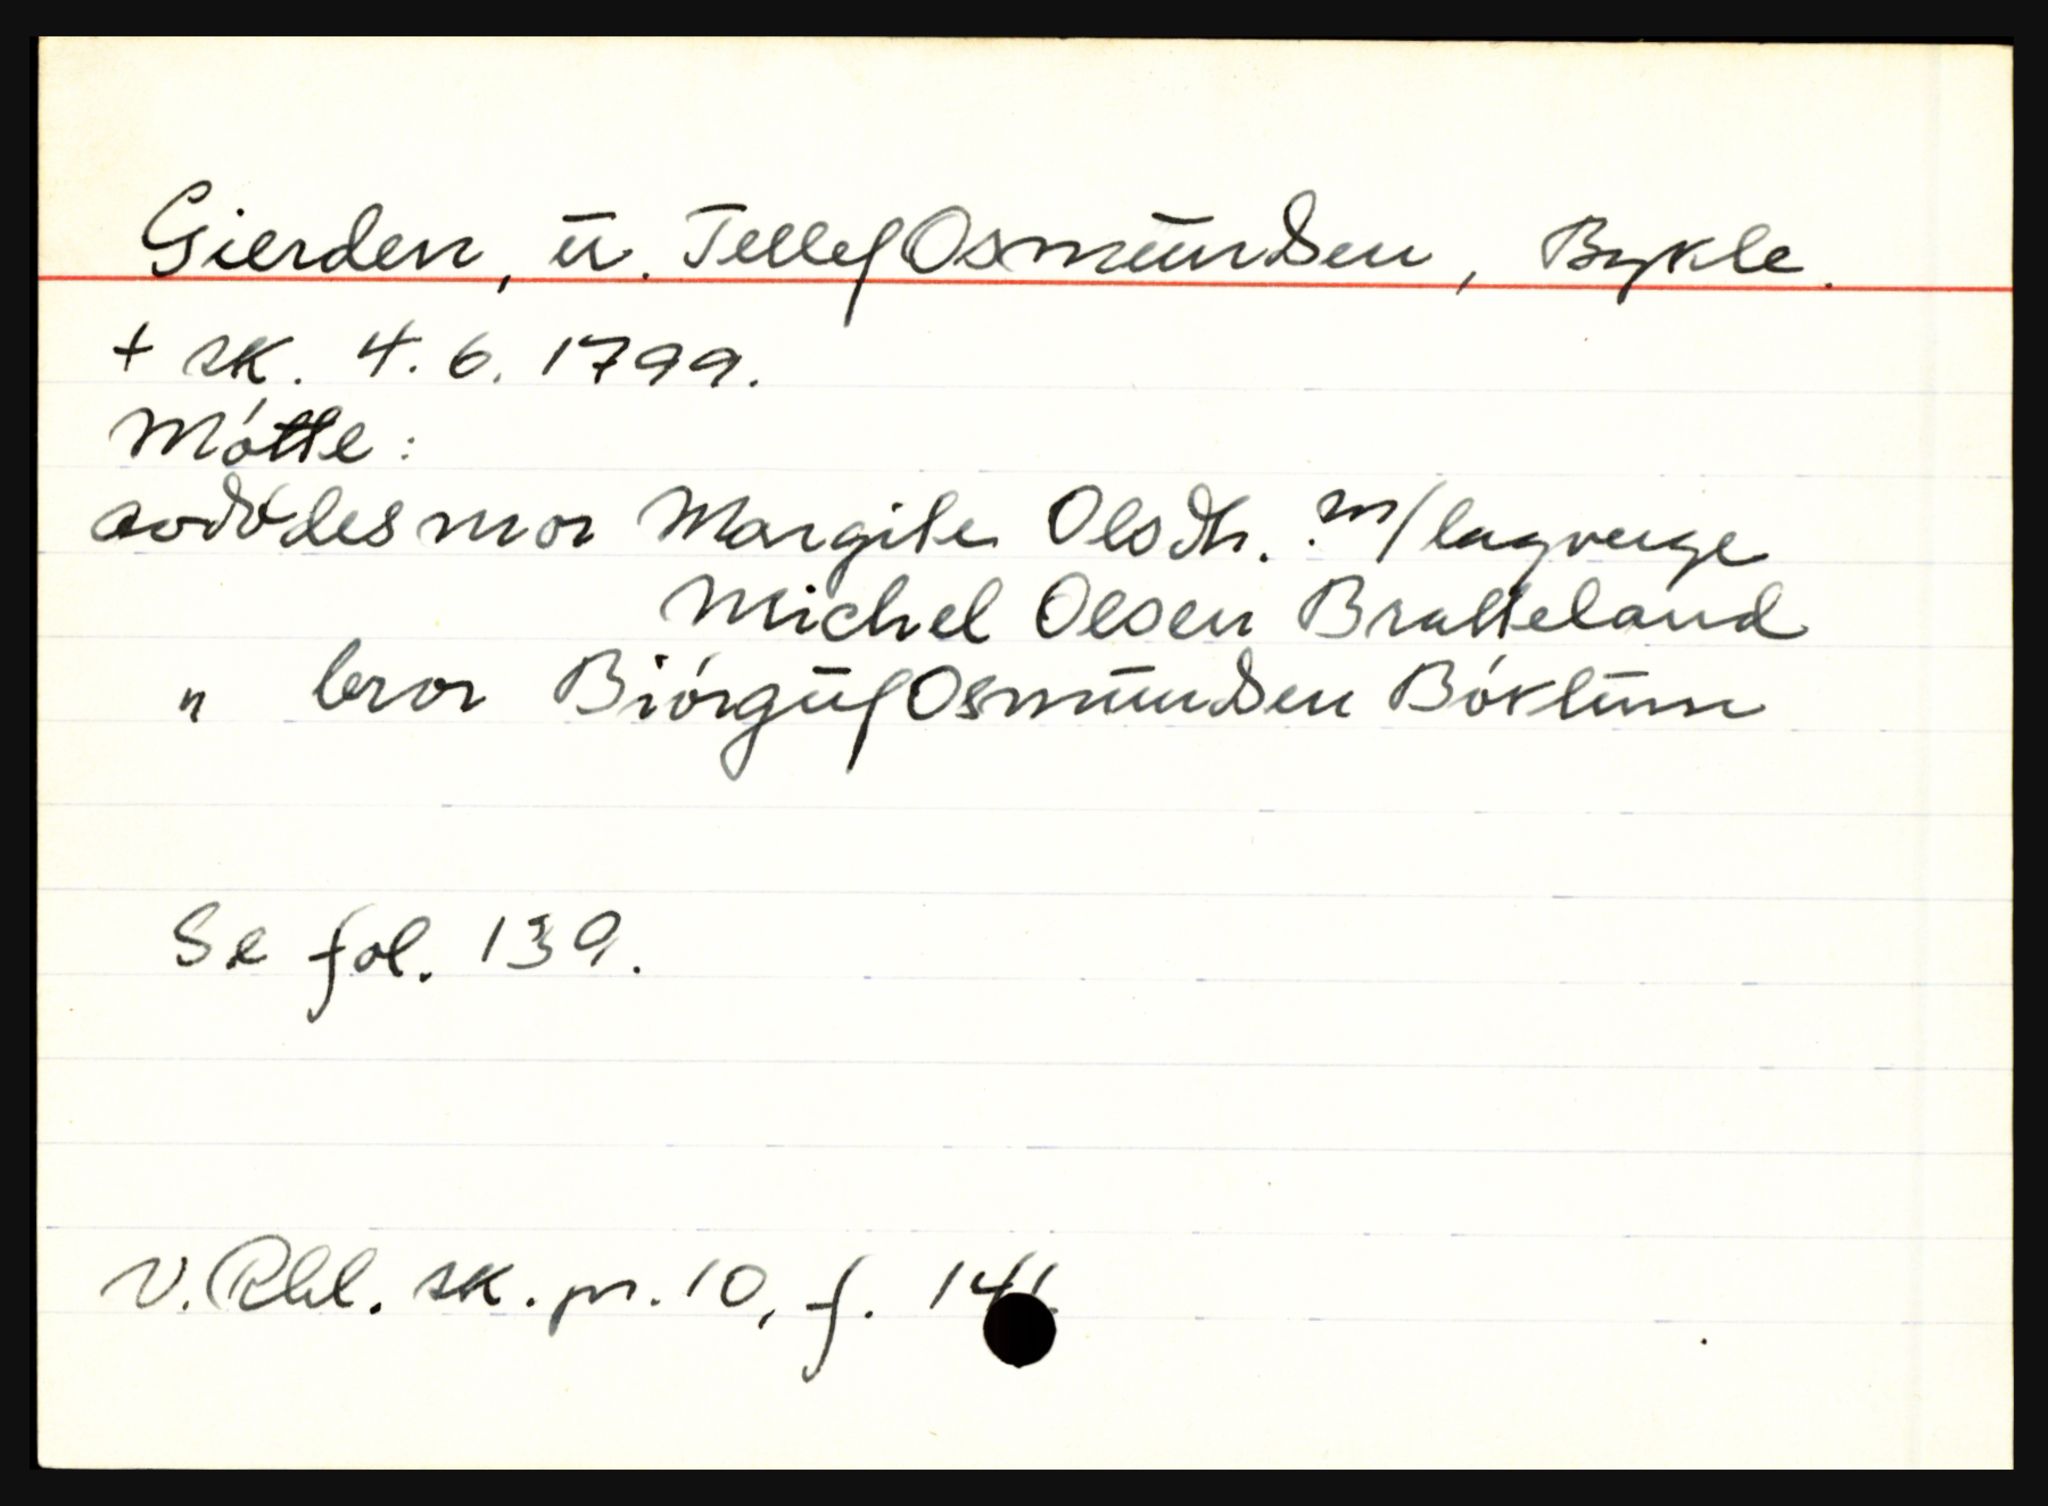 Gierden, u. Tellef Osmundsen, Bykle.
+ sk. 4.6.1799.
Mótte:
avdødes mor Margite Olsdtr. m/lagverge
Michel Olsen Bratteland
" bror Biórguf Osmundsen Bóklum
Se fol. 139.
V. Rbl. sk. pr. 10, f. 141